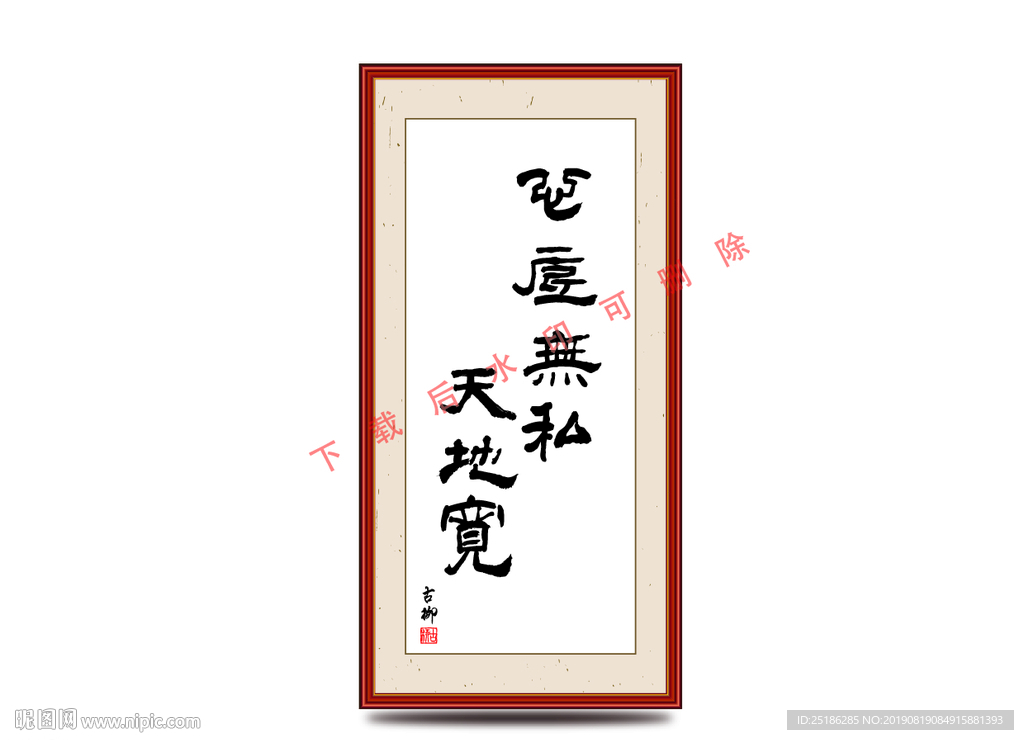 心底無私
天地寬
古柳
下载后水印可删除
昵图网 www.nipic.com
ID:25186285 NO:20190819084915881393